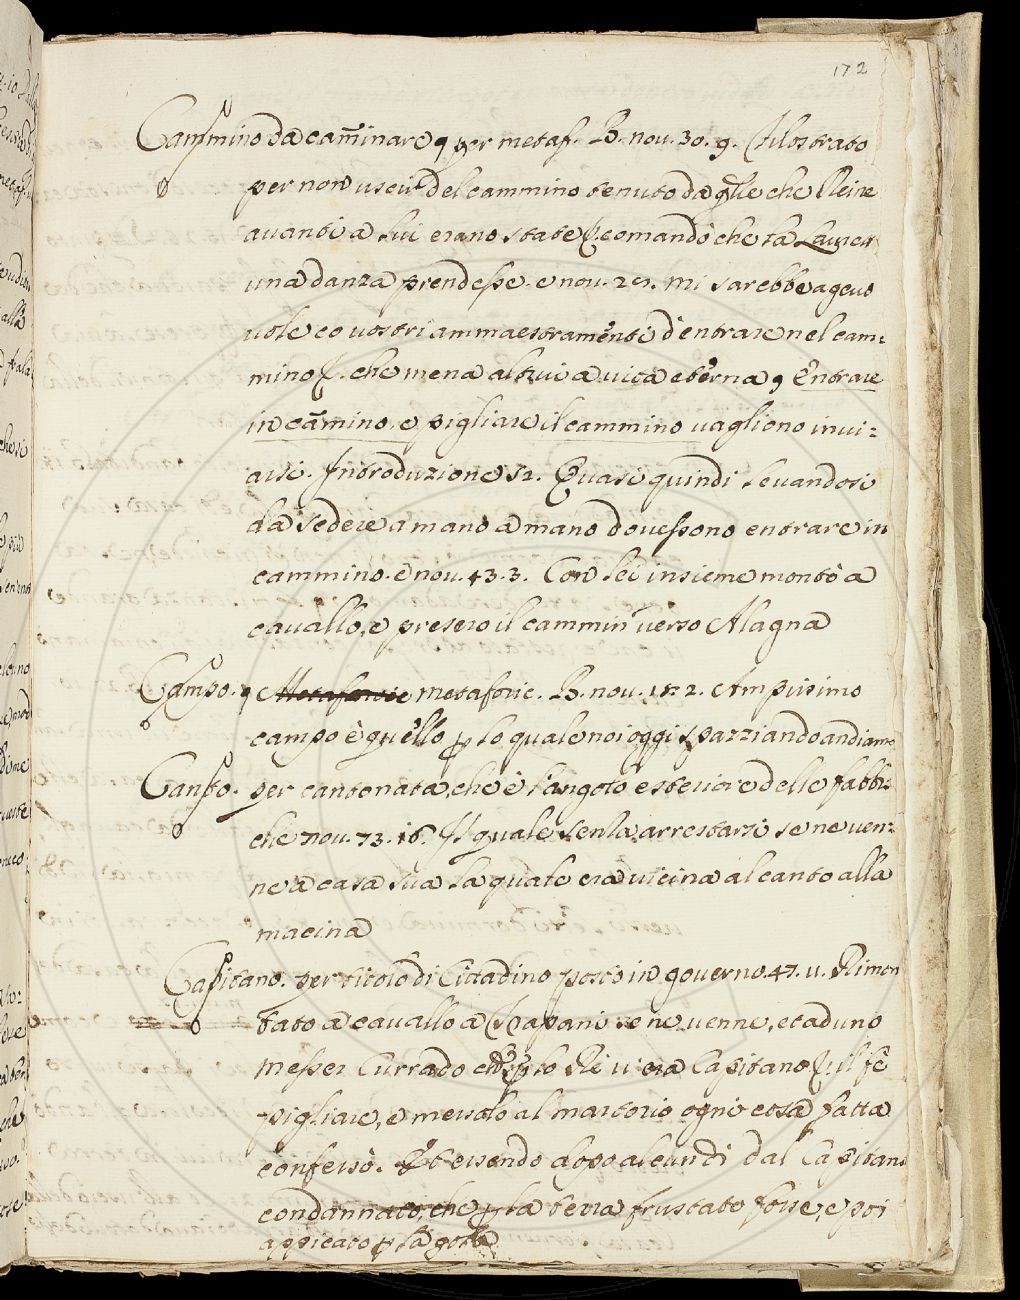 172
Cammino da caminare per metaf. B. nov. 30. 9. Filostrato
per non uscir del cammino tenuto da qlle che Reine
avanti a lui erano state comandò che la Lauret
una danza prendesse. e nov. 27. mi sarebbe agevo
vole co vostri ammaestramenti d'entrare nel cam:
mino che mena altrui a vita eterna Entrare
in camino, e pigliare il cammino vagliono invi:
arsi. Introduzione 52. Quasi quindi levandosi
da sedere a mano a mano dovessono entrare in
cammino. e nov. 43. 3. Con lei insieme montò a
cavallo, e presero il cammin verso Alagna
Campo. metaforic. B. nov. Ampissimo
campo è quello p lo quale noi oggi spazziando andiamo
Canto. per cantonata, che è l'angolo esteriore delle fabbri:
che nov. 73. 16. Il quale senla arrestarsi se ne ven:
ne a casa sua la quale era vicina al canto alla
macina
Capitano. per titolo di Cittadino posto in governo. 47. v. Rimon
tato a cavallo a Trapani se ne venne, et ad uno
messer Currado che p lo Re v'era Capitano il fè
pigliare, e messolo al martorio ogni cosa fatta
confessò. Et essendo dopo alcun dì dal Capitano
condannato, che p la terra frustato fosse, e poi
appicato p la gola